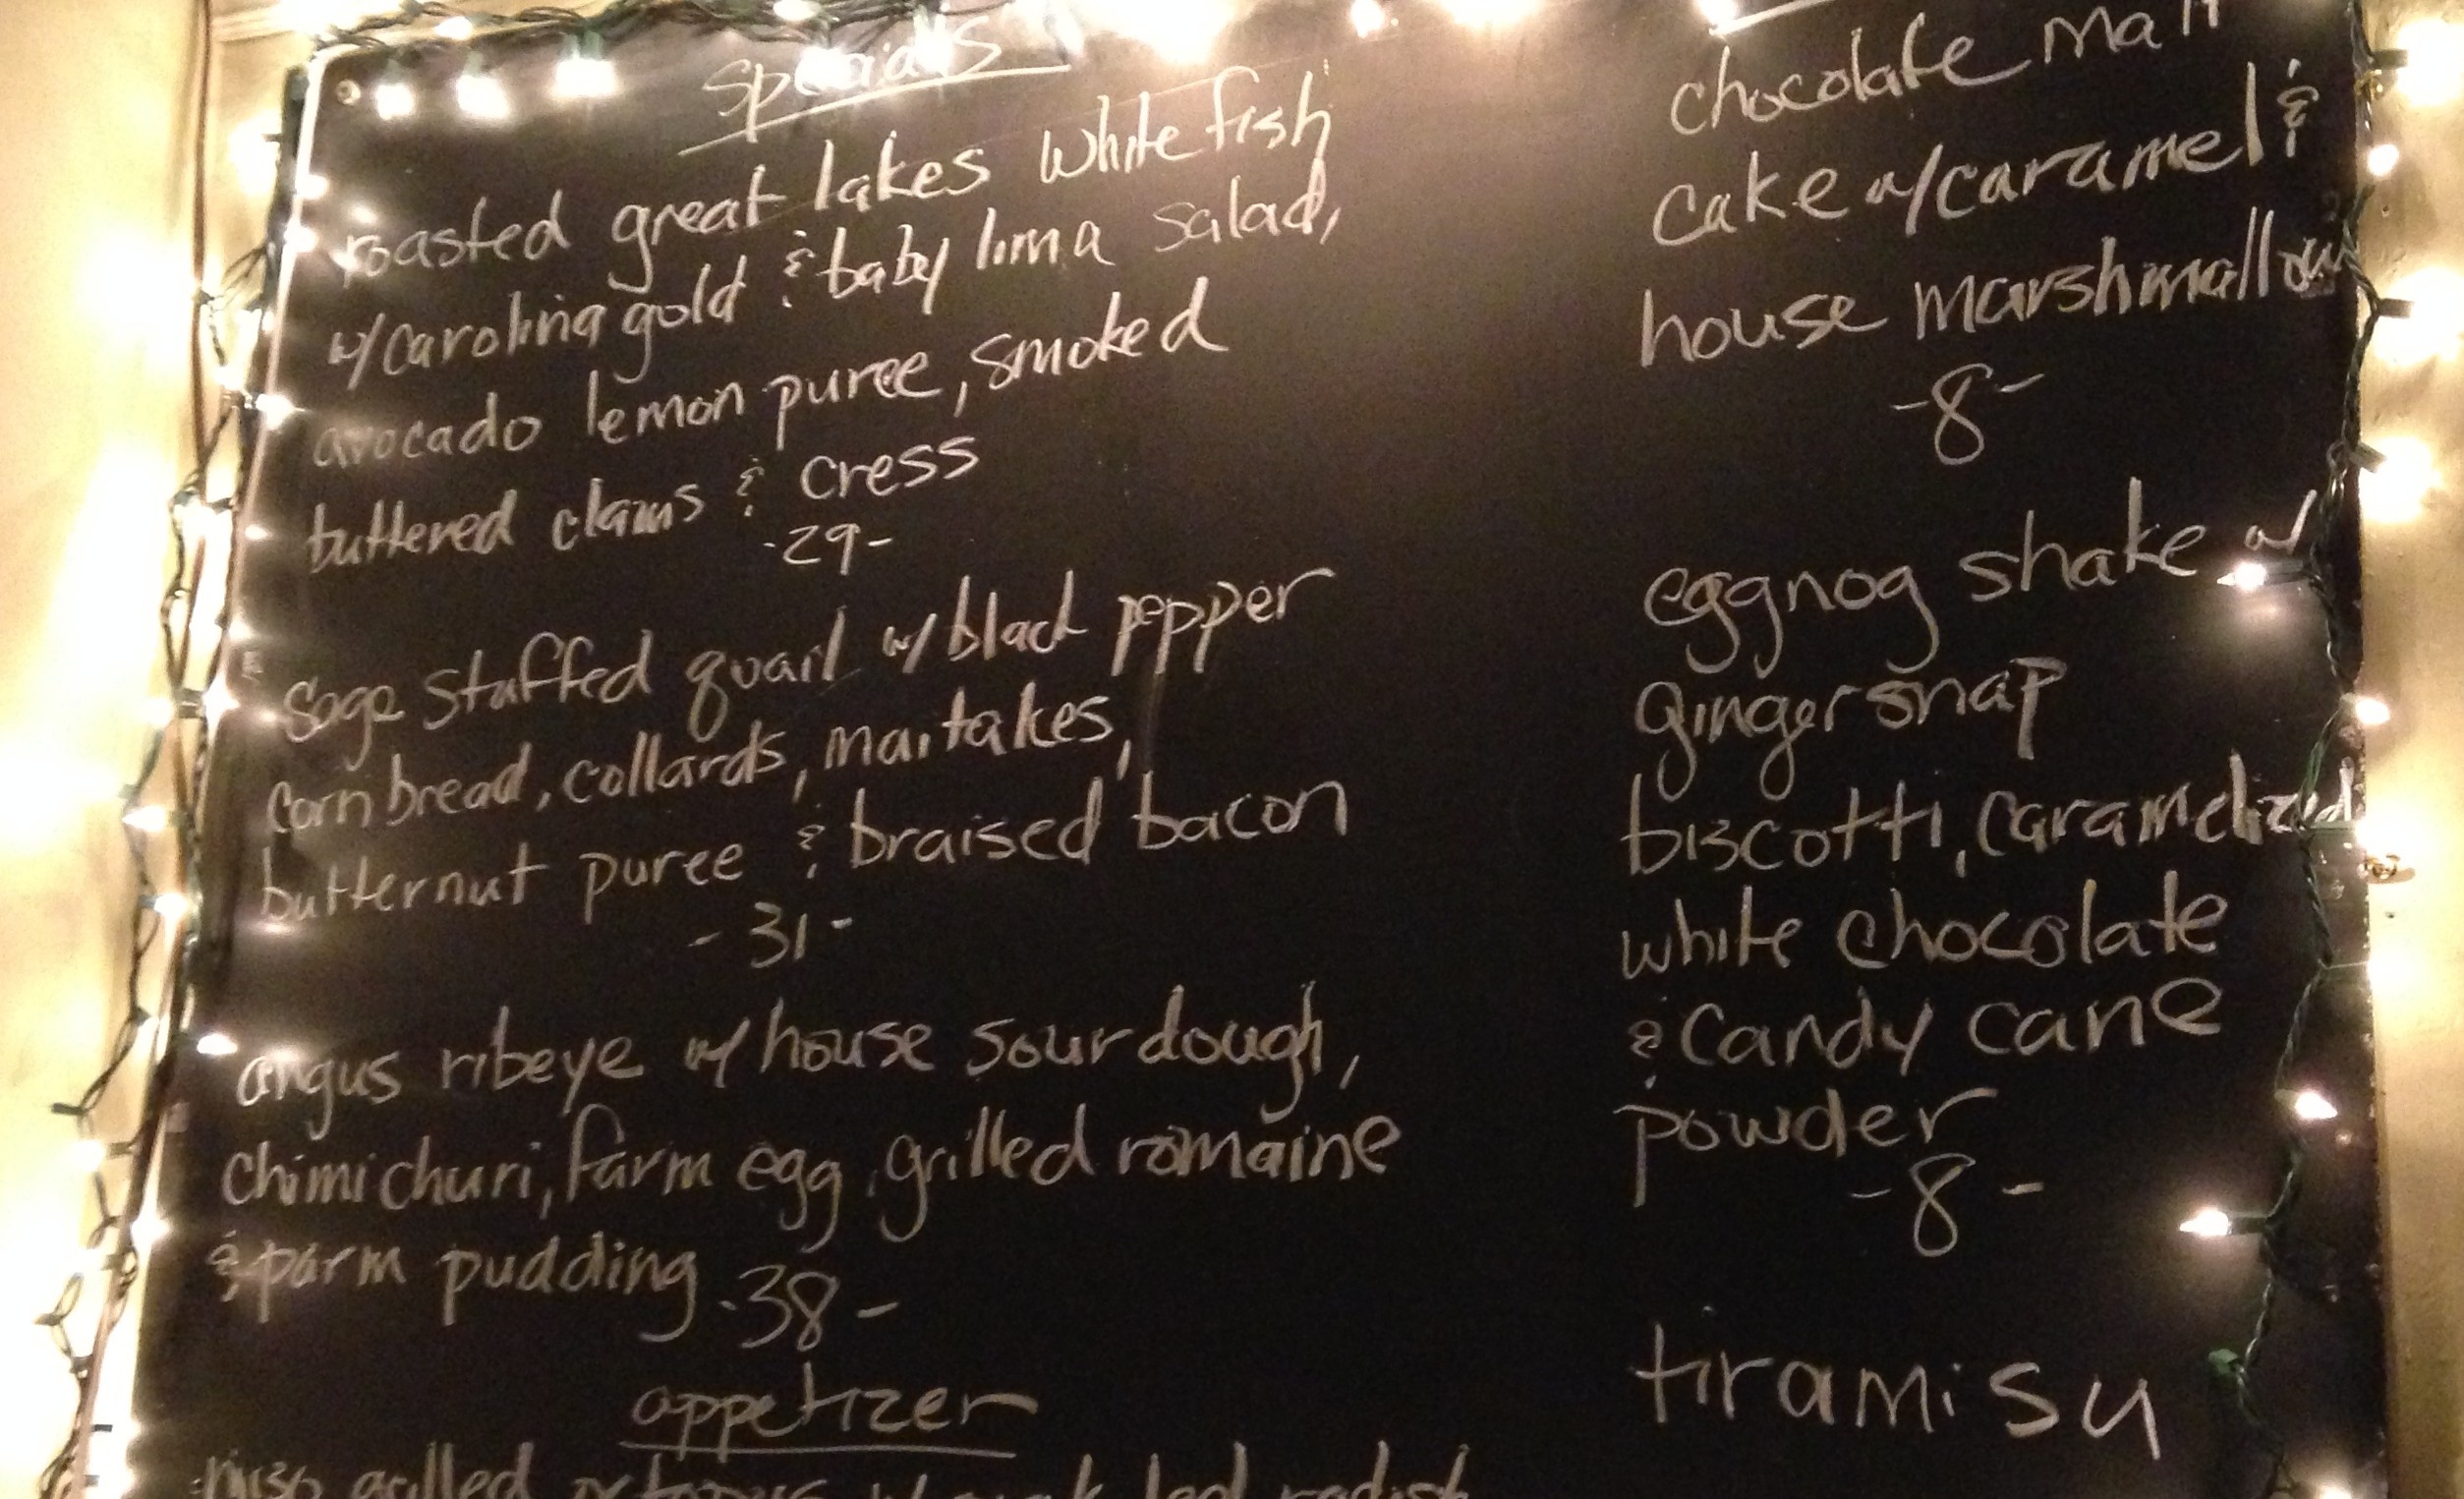 Specials
roasted great lakes whitefish
w/carolina gold & baby lima salad,
avocado lemon puree, smoked
buttered clams & cress
-29-
Sage stuffed quail w/black pepper
cornbread, collards, maitakes,
butternut puree & braised bacon
-31-
angus ribeye w/house sourdough,
chimichuri, farm egg, grilled romaine
& parm pudding -38-
appetizer
miso grilled octopus w/ led radish
chocolate malt
cake w/caramel &
house marshmallow
-8-
eggnog shake w/
gingersnap
biscotti, caramelized
white chocolate
& candy cane
powder
-8-
tiramisu